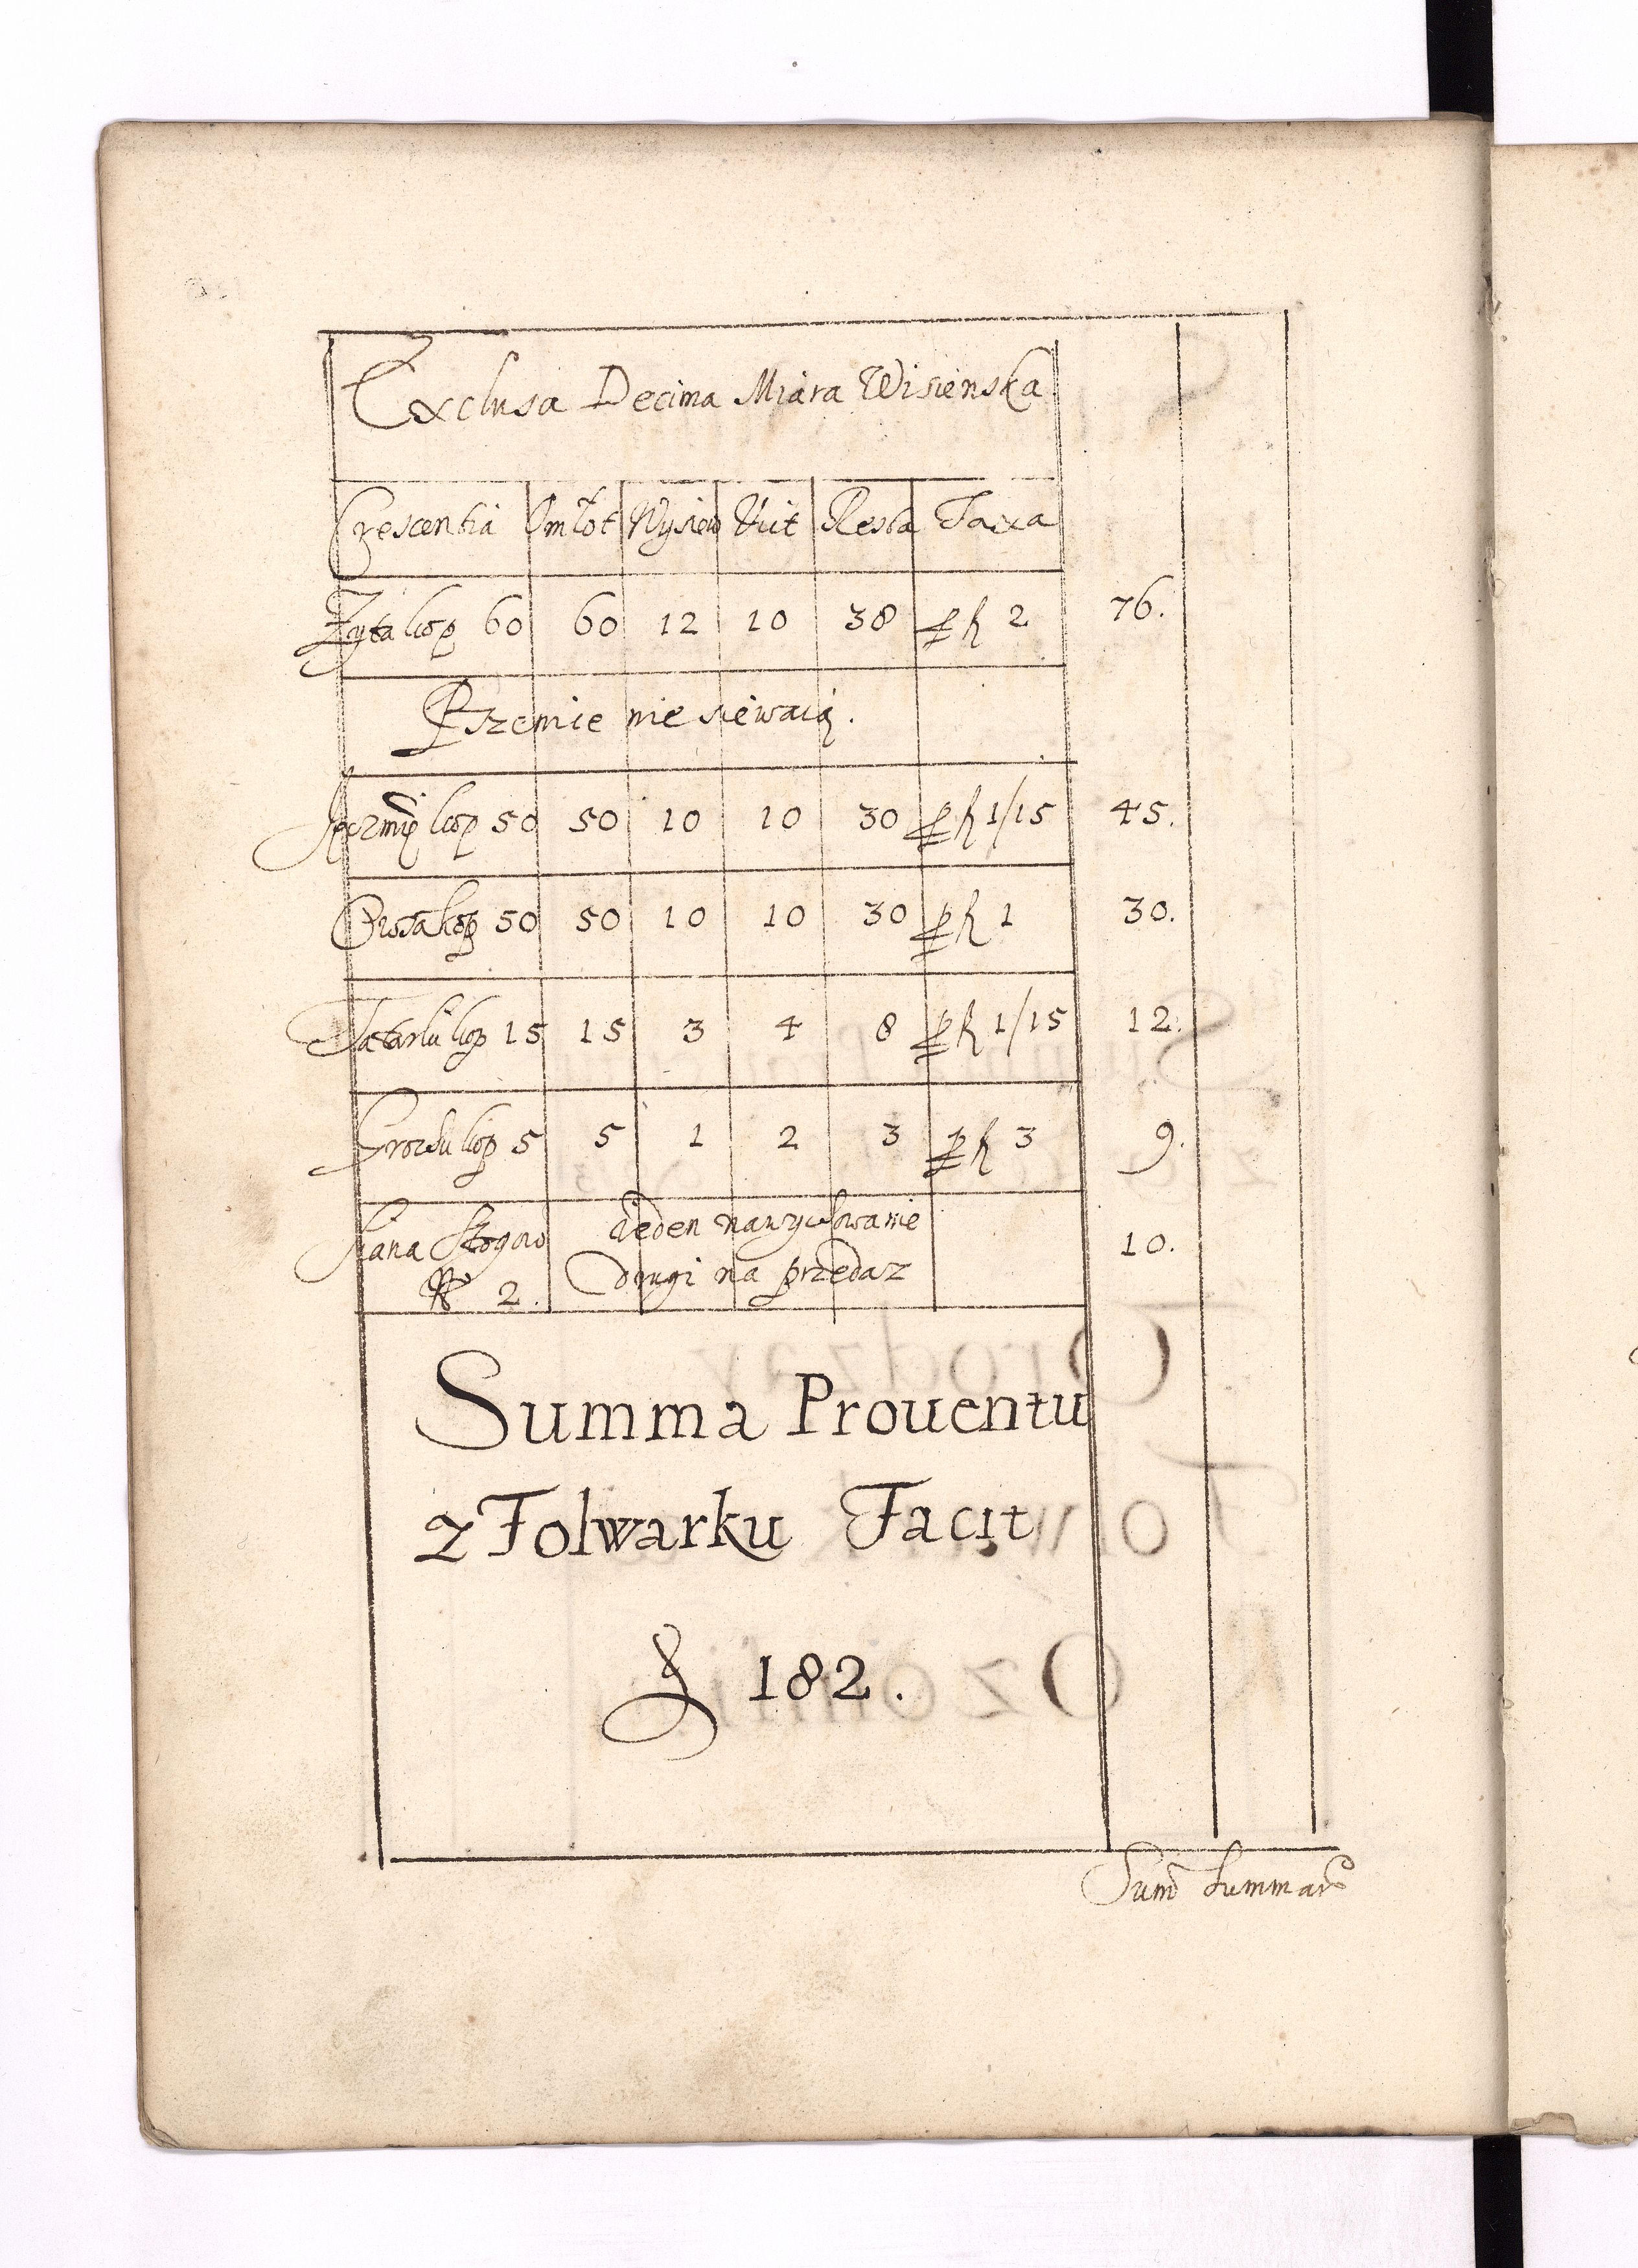 Exclusa Decima Miara Wisienska
Crescentia Omłot Wysiew Vict Resta Taxa
Zyta kop 60 60 12 10 38 p fl 2 76.
Pszenice nie siewaią.
Jęczmię kop 50 50 10 10 30 p fl 1/15 45.
Owsa kop 50 50 10 10 30 p fl 1 30.
Tatarki kop 15 15 3 4 8 p fl 1/15 12.
Grochu kop 5 5 1 2 3 p fl 3 9.
Siana Stogow ieden na wychowanie 10.
Nro 2. Drugi na przedaz
Summa Prouentu
z Folwarku Facit
fl 182.
Sum Summar